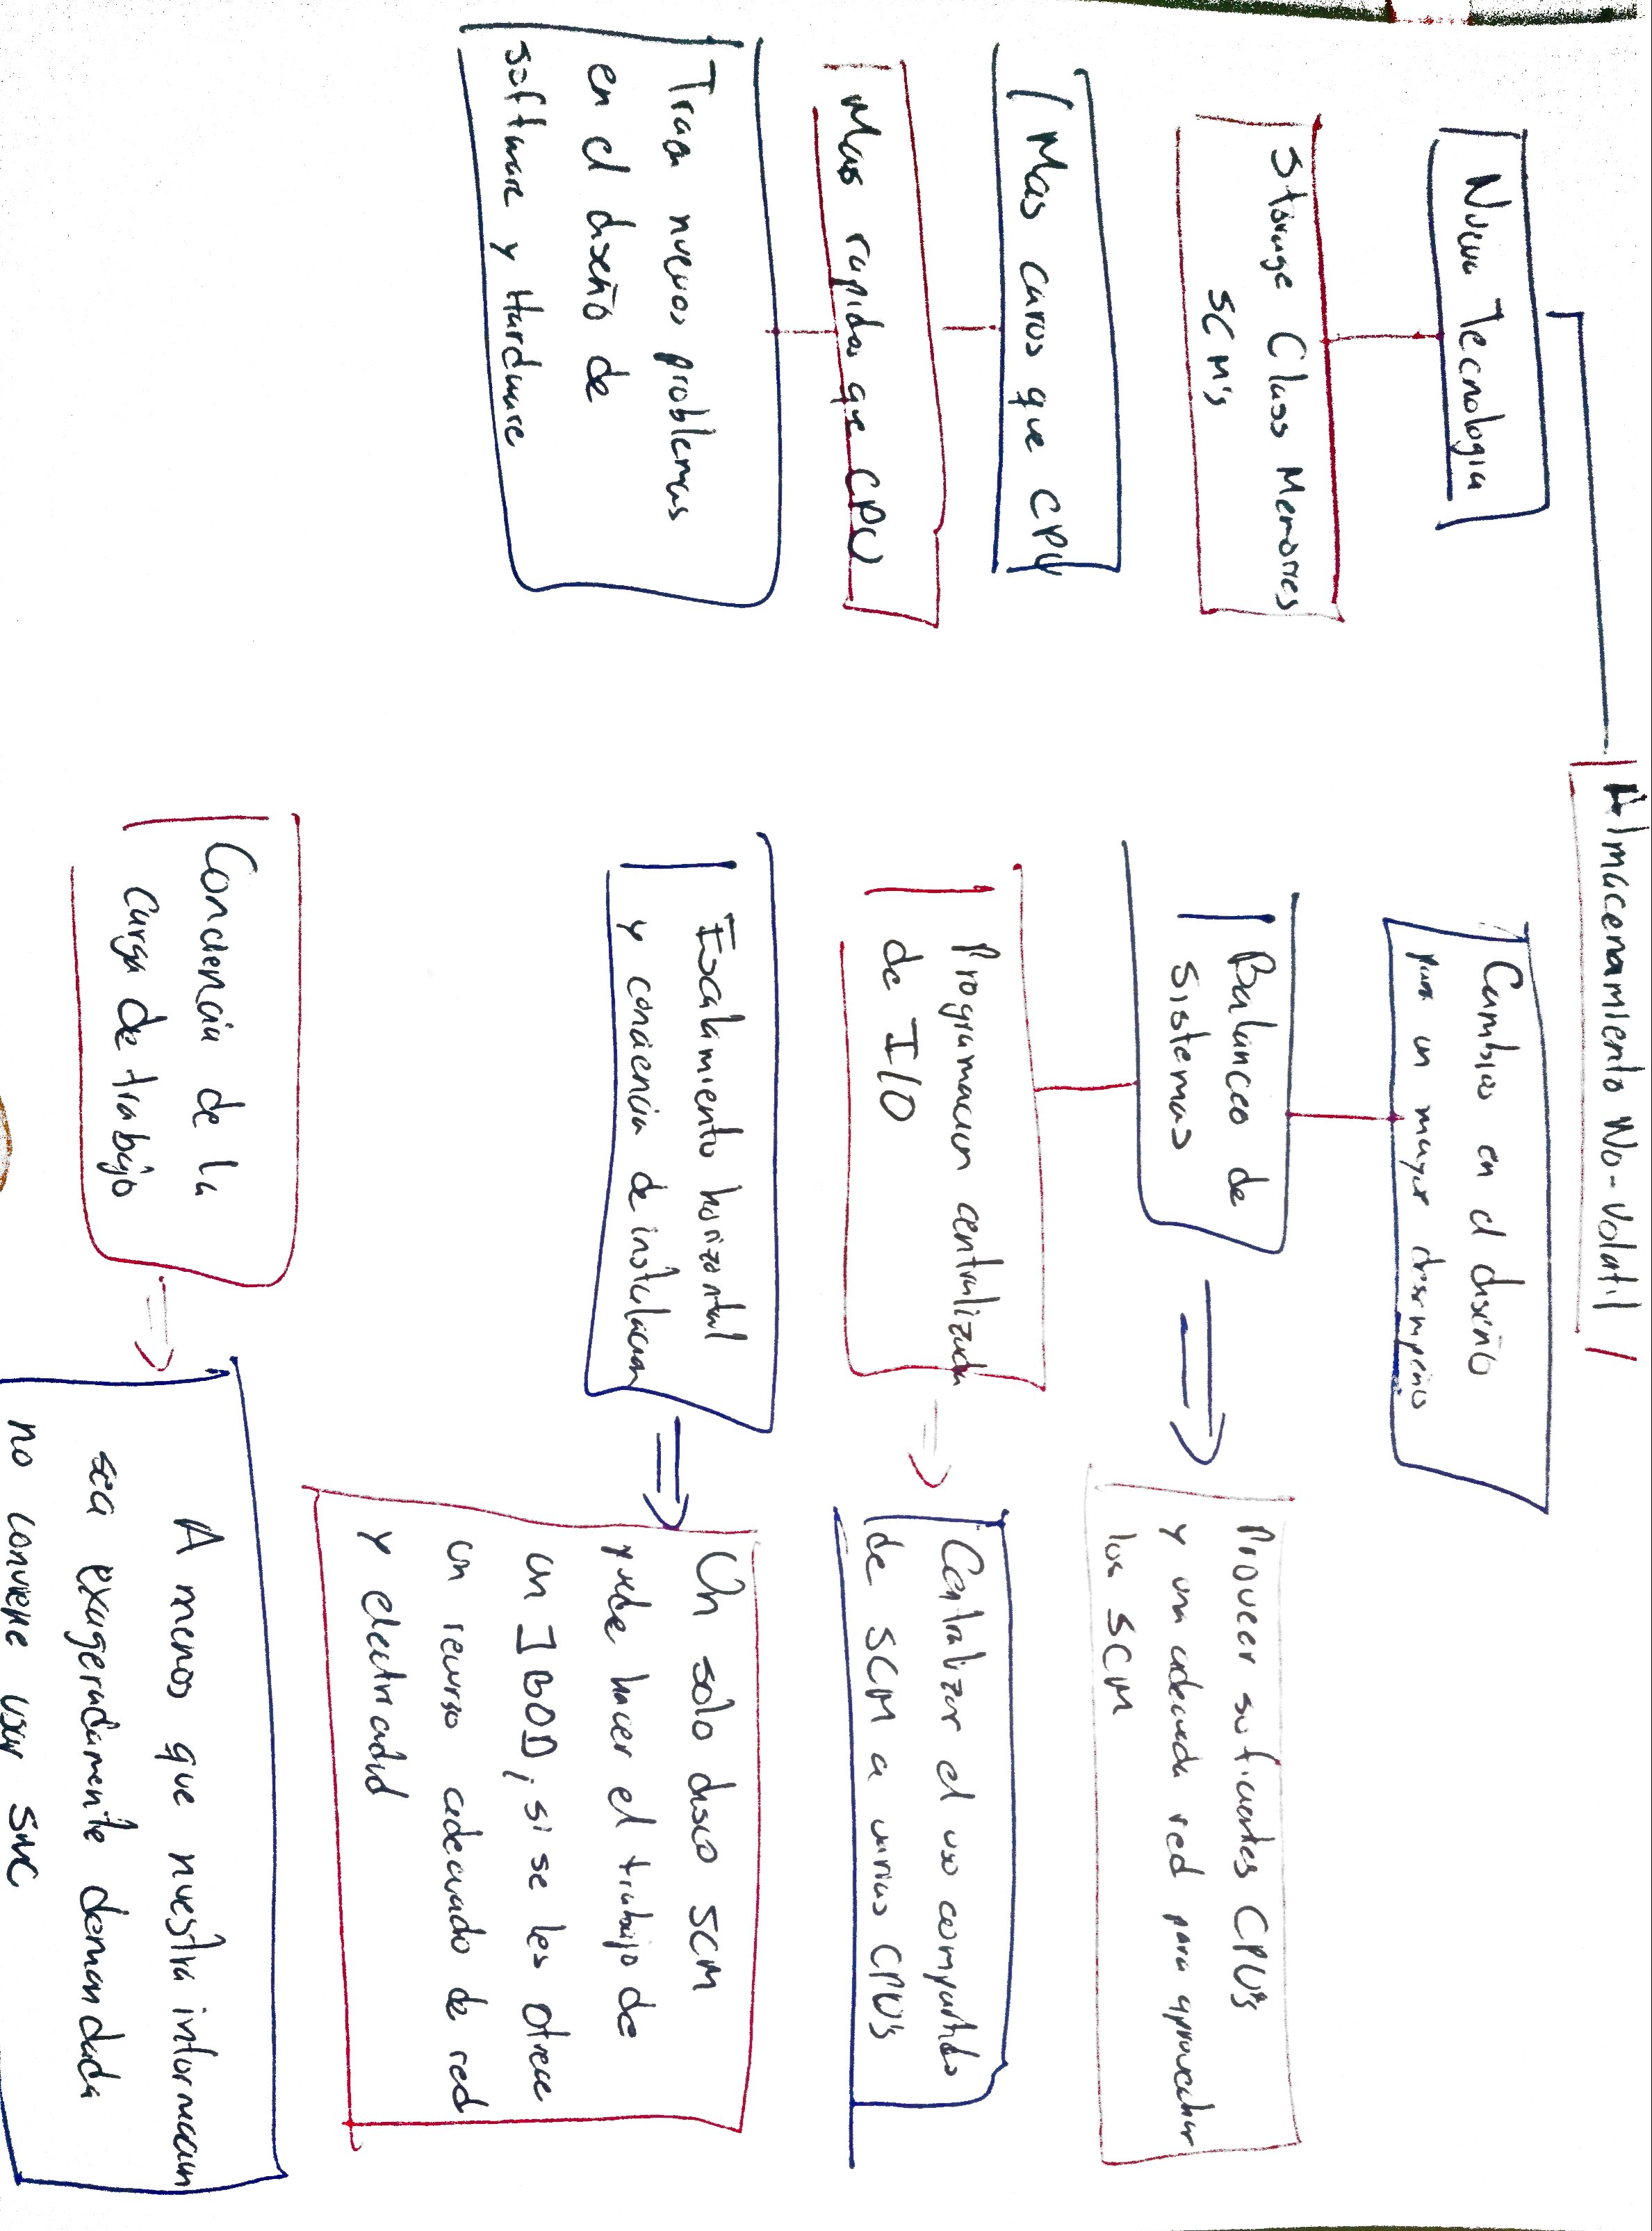 Almacenamiento No-Volatil
Nueva Tecnologia
Storage Class Memories
SCM's
Mas caros que CPU
Mas rapidos que CPU
Traen nuevos problemas
en el diseño de
software y Hardware
Cambios en el diseño
para un mayor desempeño
Balanceo de
sistemas
Proveer suficientes CPU's
y una adecuada red para aprovechar
los SCM
Programacion centralizada
de I/O
Centralizar el uso compartido
de SCM a varios CPU's
Escalamiento horizontal
y conciencia de instalacion
Un solo disco SCM
puede hacer el trabajo de
un JBOD; si se les ofrece
un recurso adecuado de red
y electricidad
Conciencia de la
carga de trabajo
A menos que nuestra informacion
sea exageradamente demandada
no conviene usar SMC